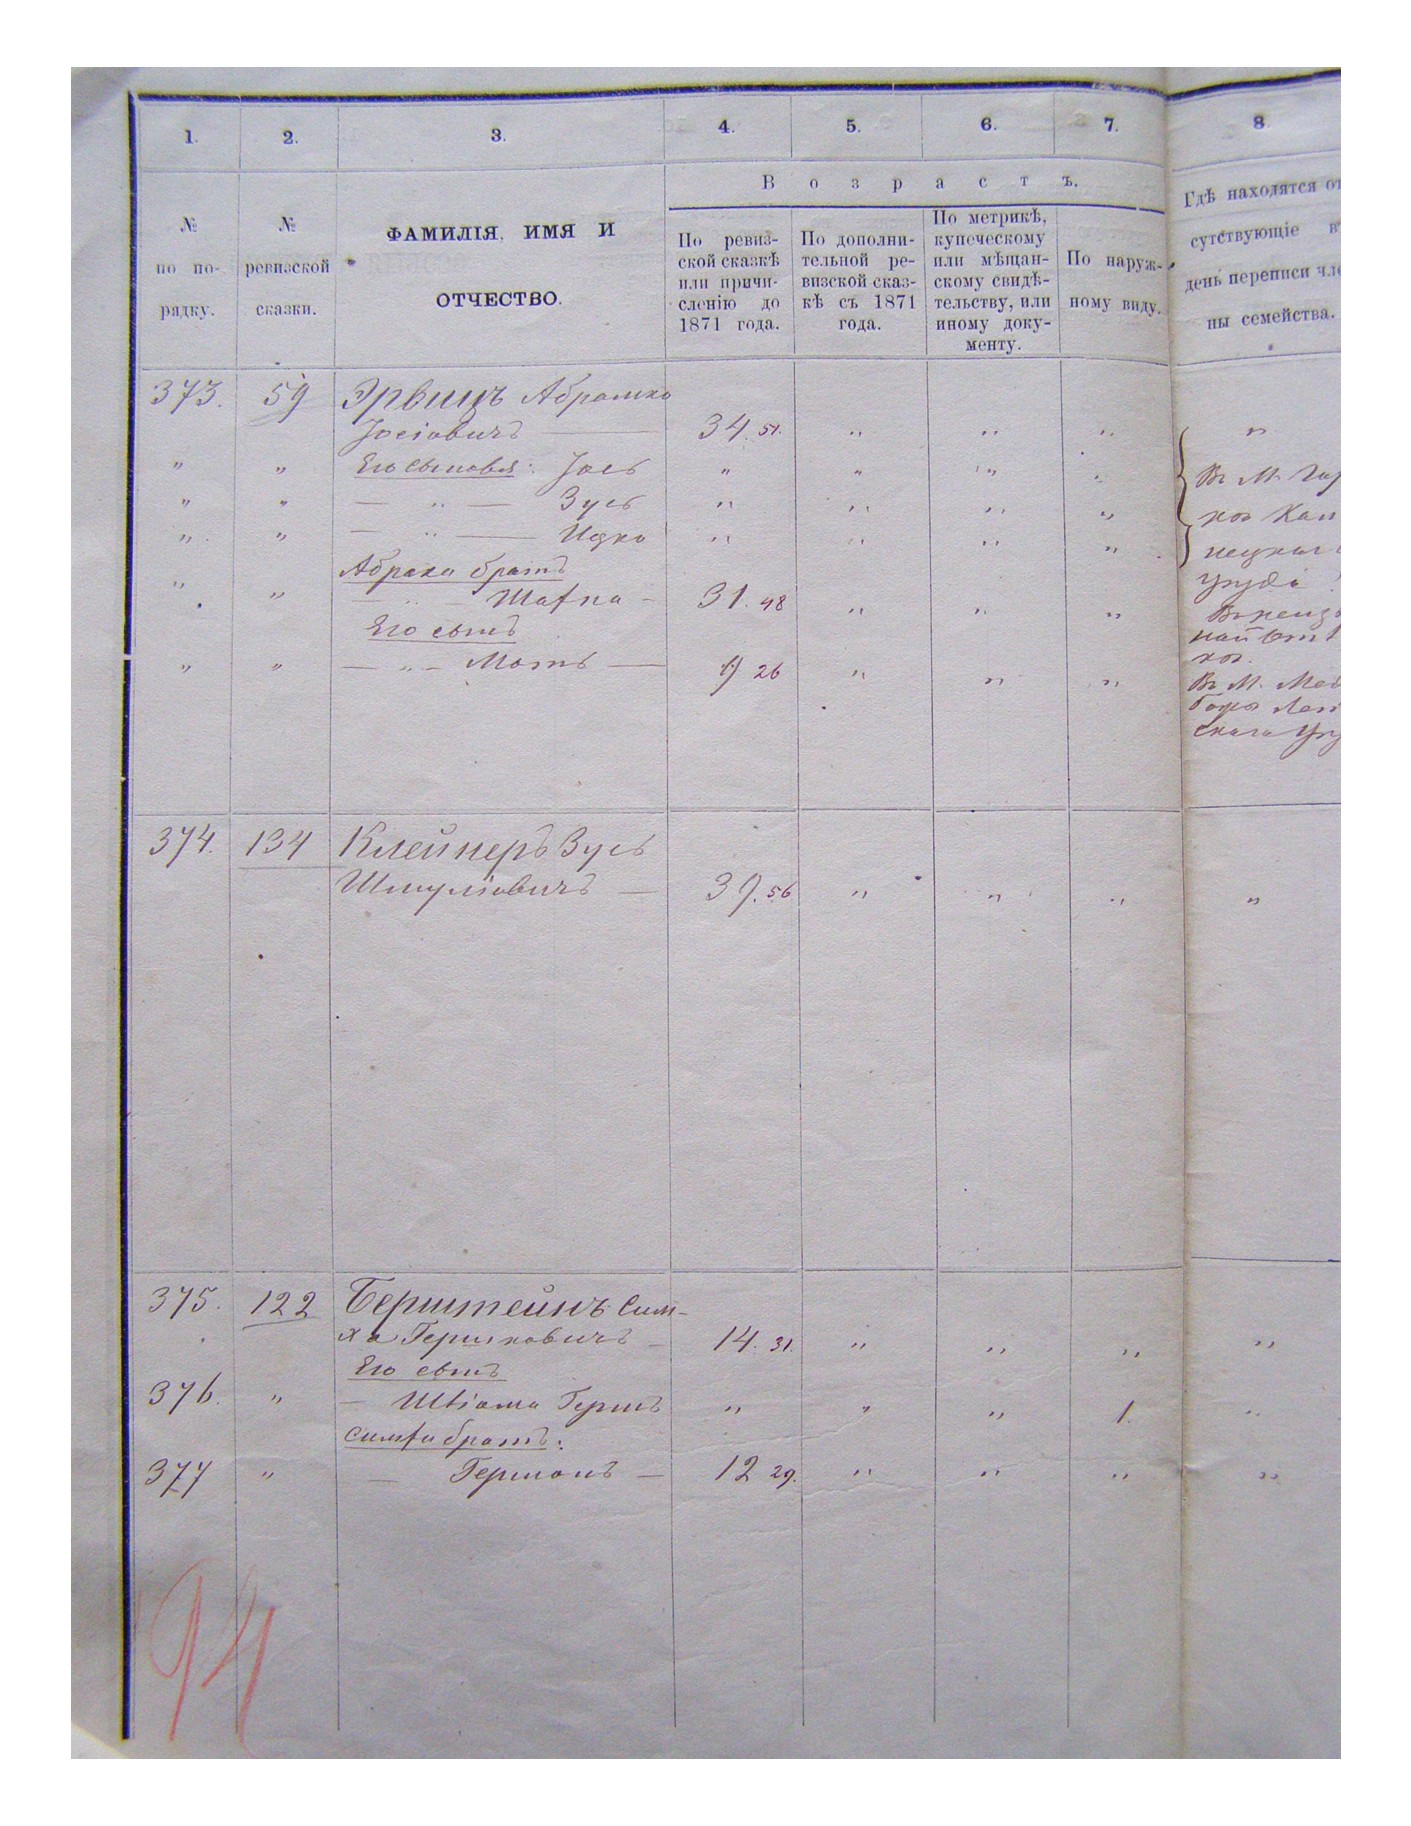 1. 2. 3. 4. 5. 6. 7. 8.
Возрастъ.
№ по по- рядку.
№ ревизской сказки.
ФАМИЛІЯ, ИМЯ И
ОТЧЕСТВО.
По ревиз-
ской сказкѣ
или причи-
сленію до
1871 года.
По дополни-
тельной ре-
визской сказ-
кѣ съ 1871
года.
По метрикѣ,
купеческому
или мѣщан-
скому свидѣ-
тельству, или
иному доку-
менту.
По наруж-
ному виду.
Гдѣ находятся от
сутствующіе въ
день переписи чле
ны семейства.
373. 59 Эрвицъ Абрамко
Іосіовичъ — 34. 51. " " " "
" " Его сыновья: Іось " " " " Въ М.
" " — " — Зусь " " " "
" " — " — Ицко " " " "
Абрама братъ
" " — " — Шахна — 31. 48 " " "
Его сынъ
" " — " — Мотъ — 9 26 " " "
Въ М.
374. 134 Клейнеръ Зусь
Шмуліовичъ — 39. 56 " " " "
375. 122 Берштейнъ Сим-
ха Гершковичъ — 14. 31. " " " "
Его сынъ
376. " — Гершъ " " " 1. "
Симхи братъ:
377 " — Германъ — 12 29. " " " "
94